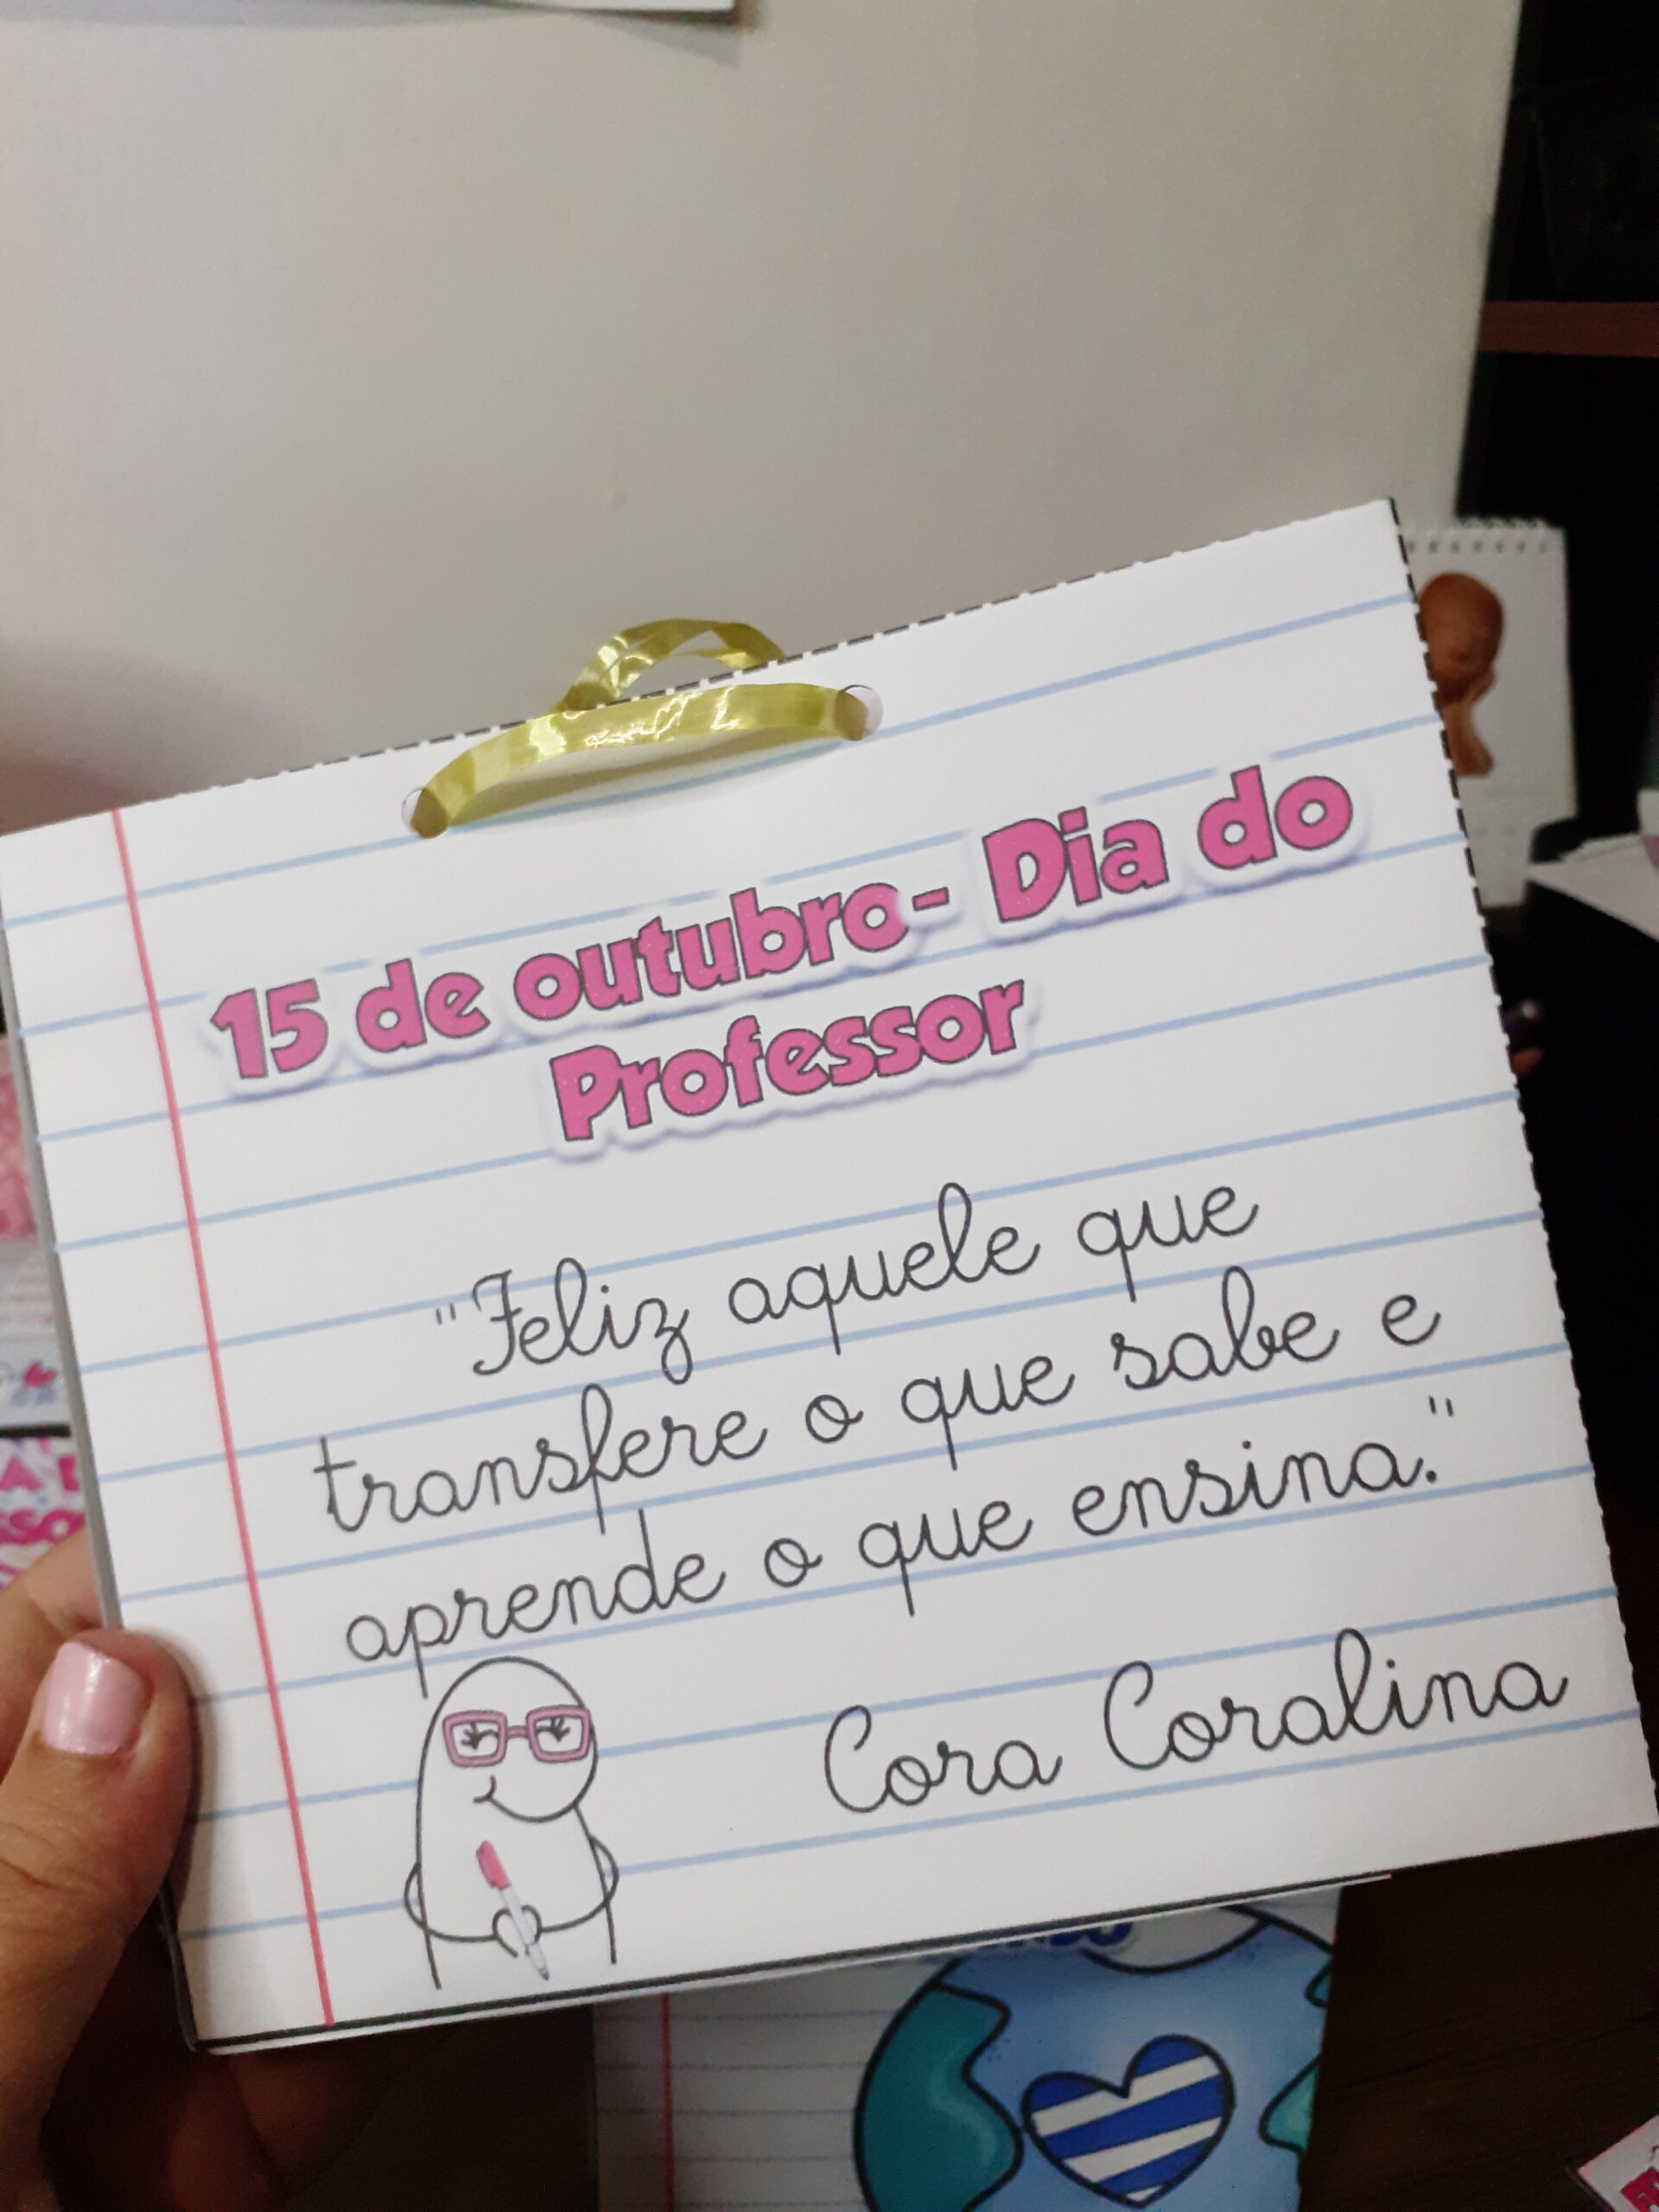 15 de outubro- Dia do
Professor
"Feliz aquele que
transfere o que sabe e
aprende o que ensina."
Cora Coralina